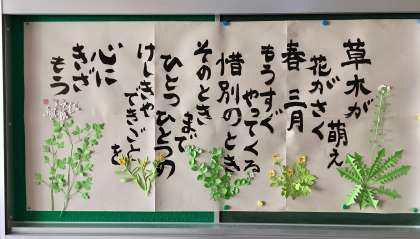 草木が萌え
花がさく
春三月
もうすぐ
やってくる
惜別のとき
そのときまで
ひとつひとつの
けしきや
できごとを
心に
きざ
もう